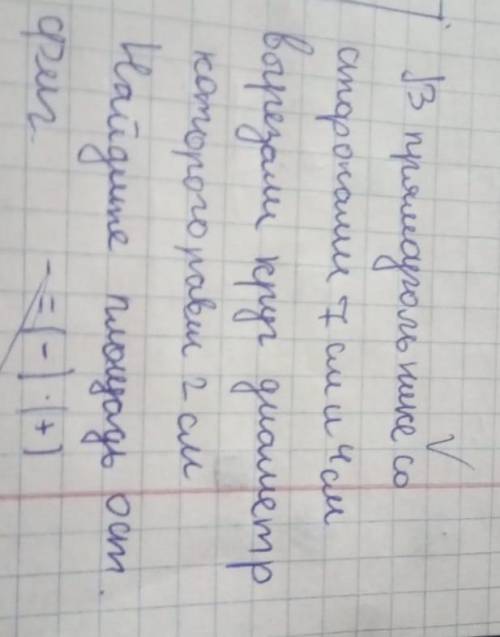 В прямоугольнике со
сторонами 7 см и 4 см
вырезали круг диаметр
которого равен 2 см
Найдите площадь ост.
фиг.
- = (-) · (+)